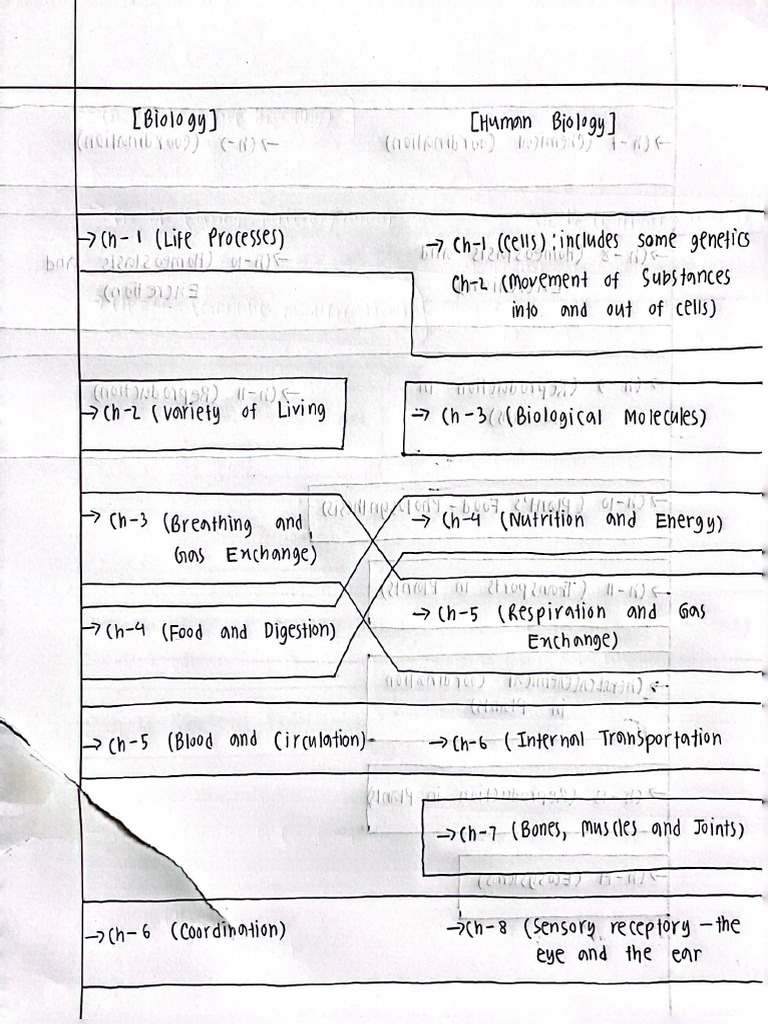 [Biology]
[Human Biology]
→ Ch-1 (Life Processes)
→ Ch-1 (Cells); includes some genetics
Ch-2 (Movement of Substances
into and out of cells)
→ Ch-2 (Variety of Living
→ Ch-3 (Biological Molecules)
→ Ch-3 (Breathing and
Gas Exchange)
→ Ch-4 (Nutrition and Energy)
→ Ch-4 (Food and Digestion)
→ Ch-5 (Respiration and Gas
Exchange)
→ Ch-5 (Blood and Circulation)
→ Ch-6 (Internal Transportation
→ Ch-7 (Bones, Muscles and Joints)
→ Ch-6 (Coordination)
→ Ch-8 (Sensory receptory – the
eye and the ear